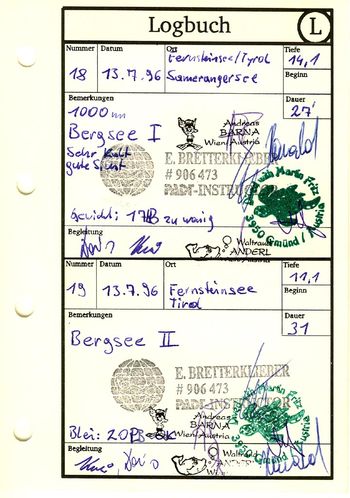 Logbuch L
Nummer Datum Ort Tiefe
18 13.7.96 Fernsteinsee/Tyrol 14,1
Samerangersee Beginn
Bemerkungen Dauer
1000 27'
Bergsee I
Andreas
BARNA
Wien/Austria
Sehr Kalt
gute Sicht
E. BRETTERKLIEBER
# 906 473
PADI-INSTRUCTOR
Martin Fritz
3950 Gmünd / Austria
Gewicht: zu wenig
Begleitung
Waltraud
ANDERL
Wien/Austria
Nummer Datum Ort Tiefe
19 13.7.96 Fernsteinsee 11,1
Tirol Beginn
Bemerkungen Dauer
31
Bergsee II
E. BRETTERKLIEBER
# 906 473
PADI-INSTRUCTOR
Andreas
BARNA
Wien/Austria
Martin Fritz
3950 Gmünd / Austria
Blei:
Begleitung
Waltraud
ANDERL